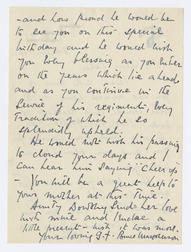 - and how proud he would be
to see you on this special
birthday and he would wish
you every blessing as you enter
on the years which lie ahead
and as you continue in the
service of his regiment, every
tradition of which he so
splendidly upheld.
He would not wish his passing
to cloud your days and I
can hear him saying "Cheer up
- You will be a great help to
your mother at this time.
Aunty Dorothy sends her love
with mine and I enclose a
little present - wish it was more.
Your loving G.F.